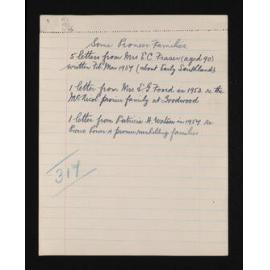 Some Pioneer Families
5 letters from Mrs E.C. Fraser (aged 90)
written Feb-Mar 1954 (about Early Southland)
1 letter from Mrs E G Foord in 1953 re the
McNicol pioneer family at Goodwood
1 letter from Patricia H. Watson in 1954 re
pioneer families
317